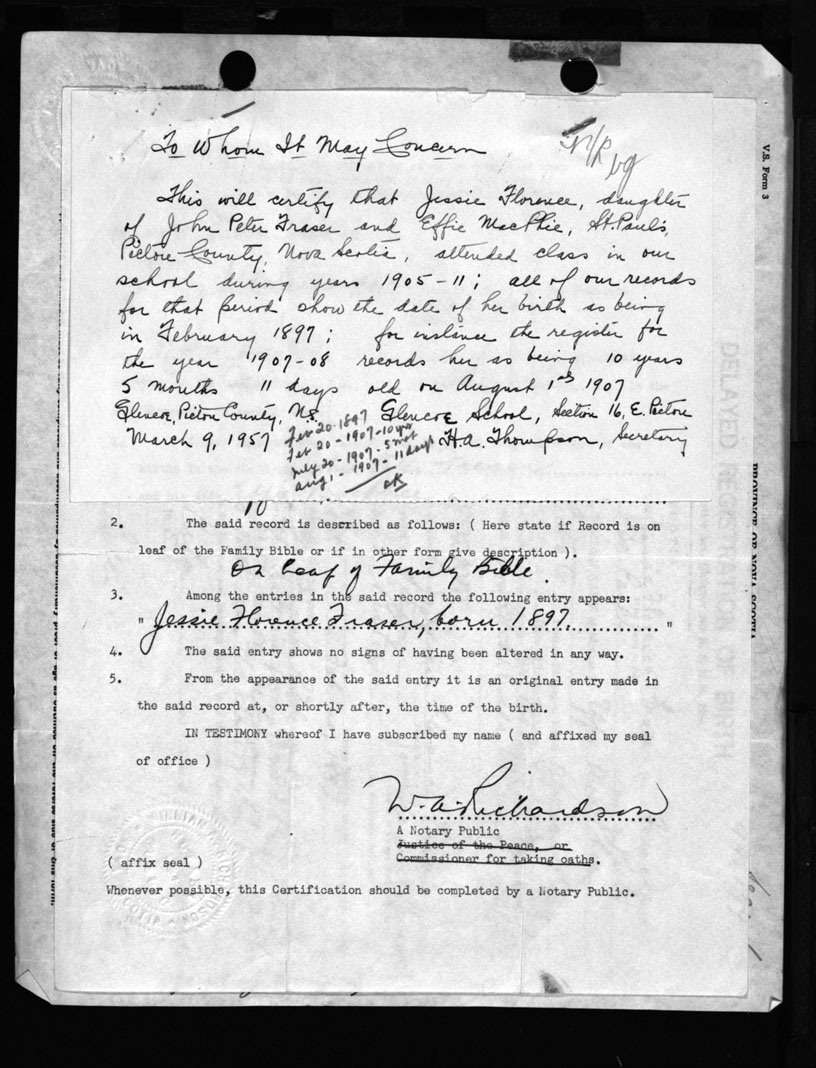 To Whom It May Concern
N/R
This will certify that Jessie Florence, daughter
of John Peter Fraser and Effie MacPhie, St. Paul's,
Pictou County, Nova Scotia, attended class in our
school during years 1905-11; all of our records
for that period show the date of her birth as being
in February 1897; for instance the register for
the year 1907-08 records her as being 10 years
5 months 11 days old on August 1st 1907
Glencoe, Pictou County, N.S. Glencoe School, Section 16, E. Pictou
March 9, 1957 H.A. Thompson, Secretary
Feb 20-1897
Feb 20-1907-10 yrs
July 20-1907-5 mos
Aug 1-1907-11 days
OK
2. The said record is described as follows: ( Here state if Record is on
leaf of the Family Bible or if in other form give description ).
On Leaf of Family Bible.
3. Among the entries in the said record the following entry appears:
" Jessie Florence Fraser, born 1897 "
4. The said entry shows no signs of having been altered in any way.
5. From the appearance of the said entry it is an original entry made in
the said record at, or shortly after, the time of the birth.
IN TESTIMONY whereof I have subscribed my name ( and affixed my seal
of office )
W. A. Richardson
A Notary Public
Justice of the Peace, or
( affix seal ) Commissioner for taking oaths.
Whenever possible, this Certification should be completed by a Notary Public.
V.S. Form 3
PROVINCE OF NOVA SCOTIA
DELAYED REGISTRATION OF BIRTH